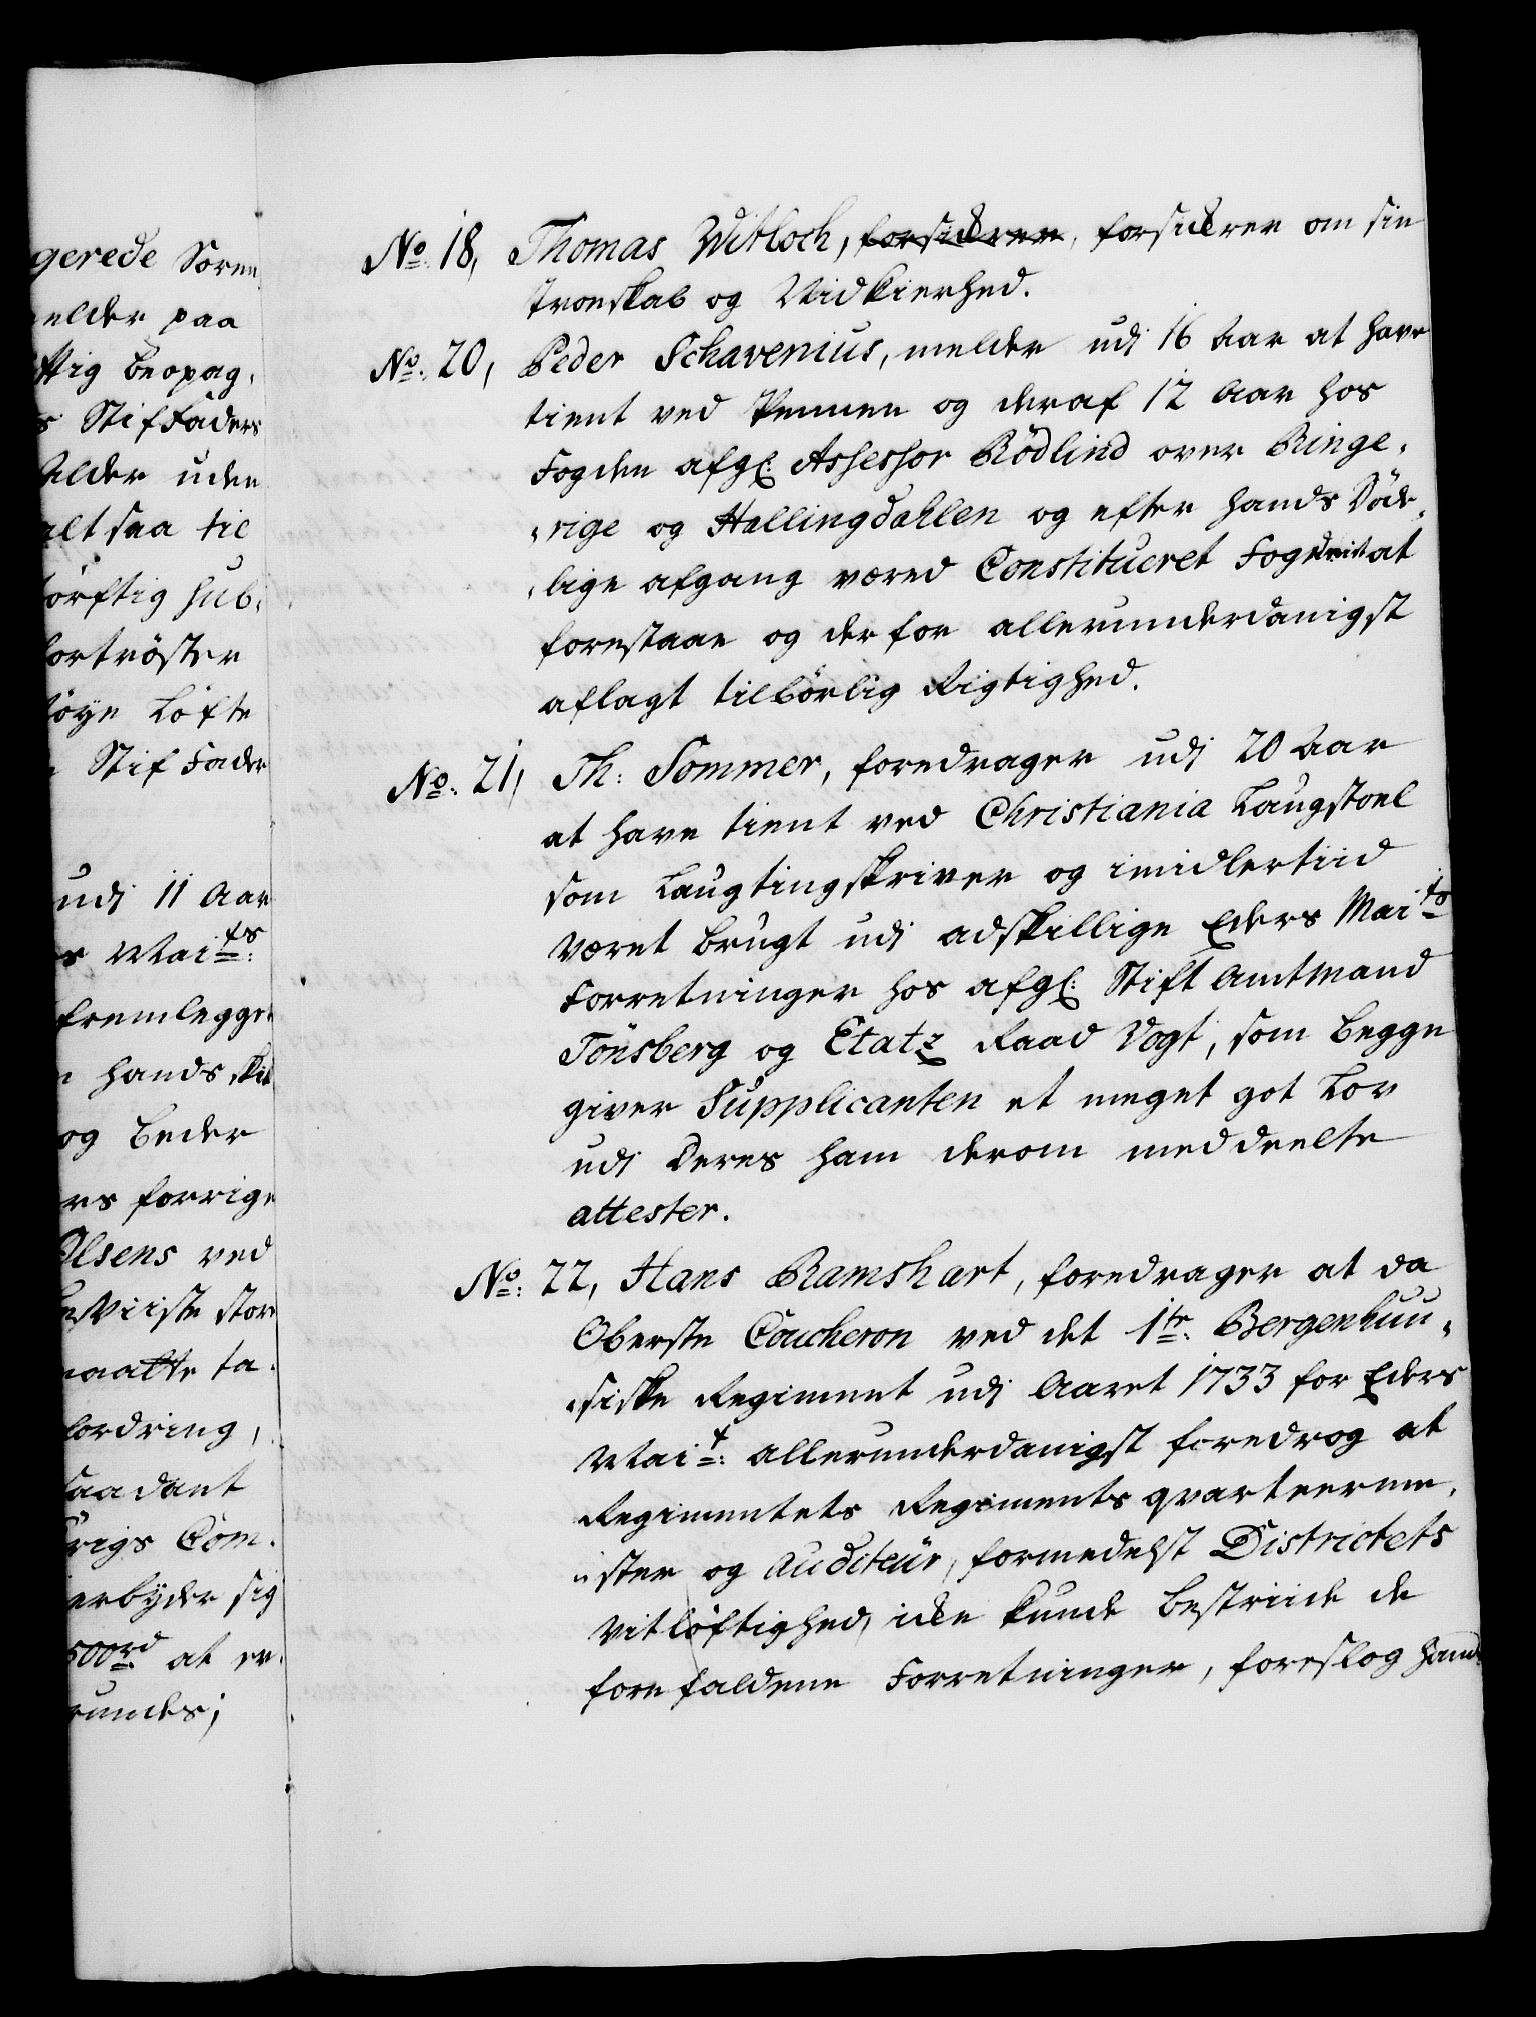 gerede Søren
melder paa
ftig Beopag,
s Stiffaders
Alder uden
alt saa til
tørftig hus,
fortrøster
føye Løfte
Stif Fader
udj 11 Aar
rs Maits:
fremlegger
hands skil
og Beder
rs forrige
Olsens ved
beviiste store
maatte ta.
fordring,
saadant
Krigs Com.
erbyder sig
500rd at er.
rundes;
No. 18, Thomas Witloch, forsickrer, forsickrer om sin
troeskab og Vidkierhed.
No. 20, Peder Schavenius, melder udj 16 Aar at have
tient ved Pennen og deraf 12 Aar hos
Fogden afgl: Assessor Rödlind over Ringe,
,rige og Hallingdahlen og efter hands Døde,
,lige afgang været Constitueret Fogderiet at
forestaae og derfor allerunderdanigst
aflagt tilbørlig Rigtighed.
No. 21, Th: Sommer, foredrager udj 20 Aar
at have tient ved Christiania Laugstoel
som Laugtingskriver og imidlertiid
været brugt udj adskillige Eders Maits
Forretninger hos afgl: Stift Amtmand
Tönsberg og Etatz Raad Vogt, som begge
giver Supplicanten et meget got Lov
udj deres ham derom meddeelte
attester.
No. 22, Hans Ramshart, foredrager at da
Oberste Coucheron ved det 1te. Bergenhuu,
,siske Regiment udj Aaret 1733 for Eders
Mait: allerunderdanigst foredrog at
Regimentets Regiments qvarteerme,
,ster og Auditeür, formedelst Districtets
Vitløftighed, icke kunde bestriide de
forefaldene Forretninger, foreslog hand